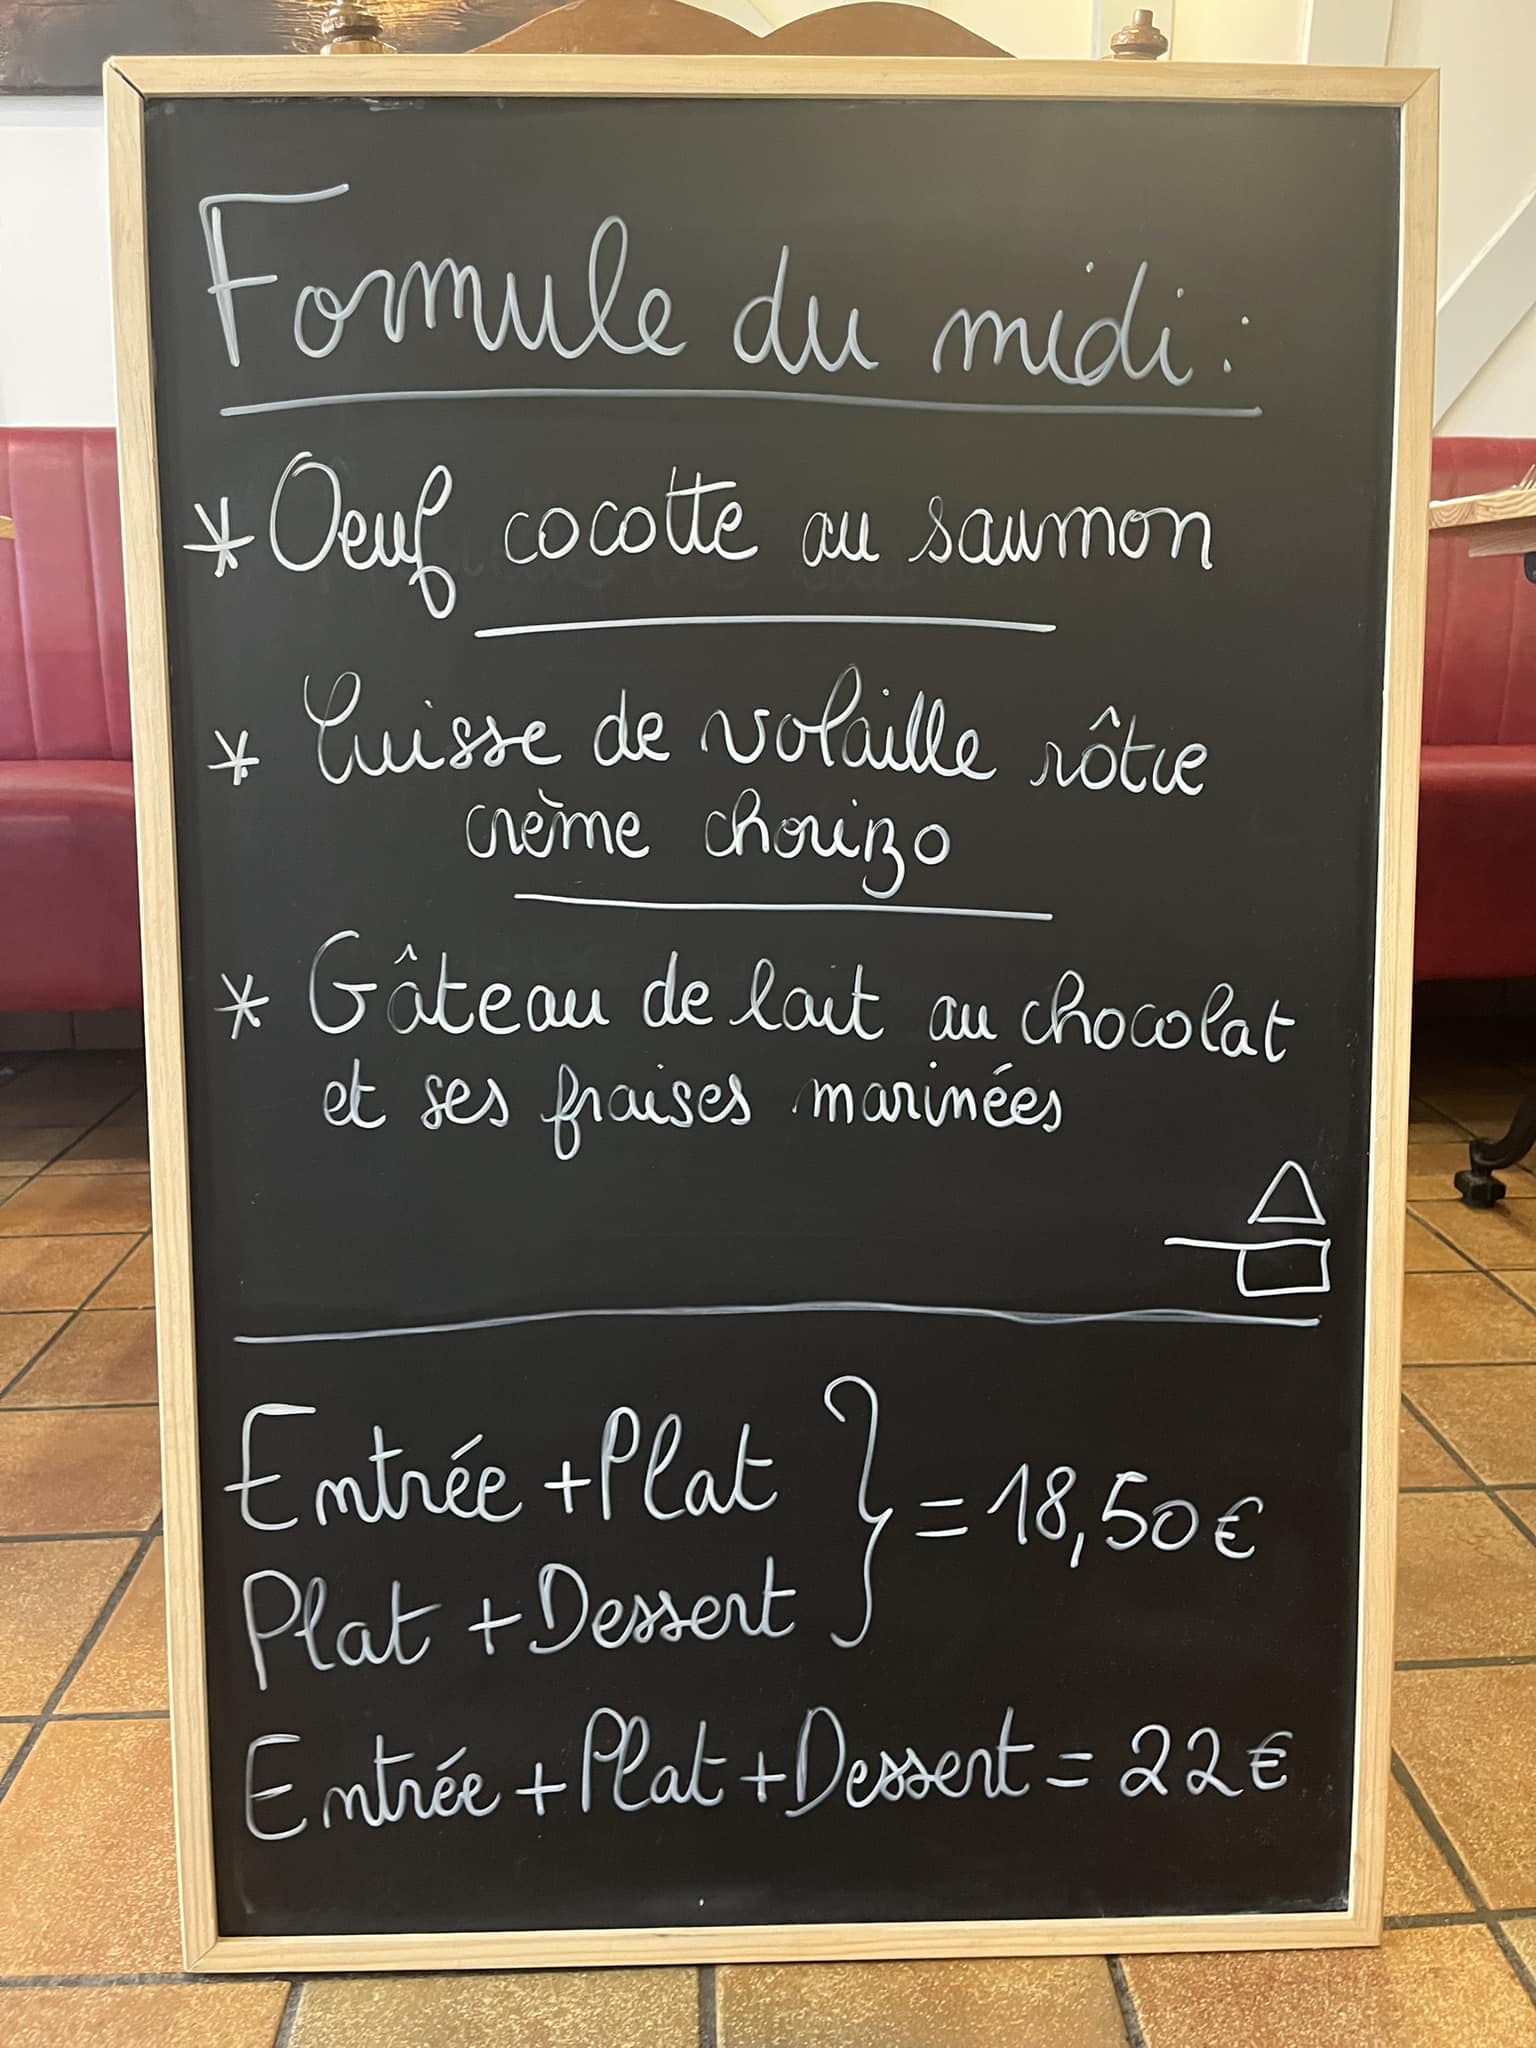 Formule du midi :
* Oeuf cocotte au saumon
* Cuisse de volaille rôtie
crème chorizo
* Gâteau de lait au chocolat
et ses fraises marinées
Entrée + Plat
Plat + Dessert } = 18,50 €
Entrée + Plat + Dessert = 22 €